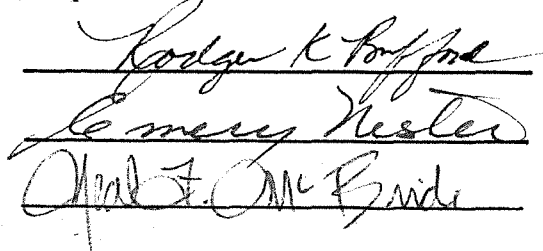 Rodger K Bufford
Emery Nester
Neal F. McBride